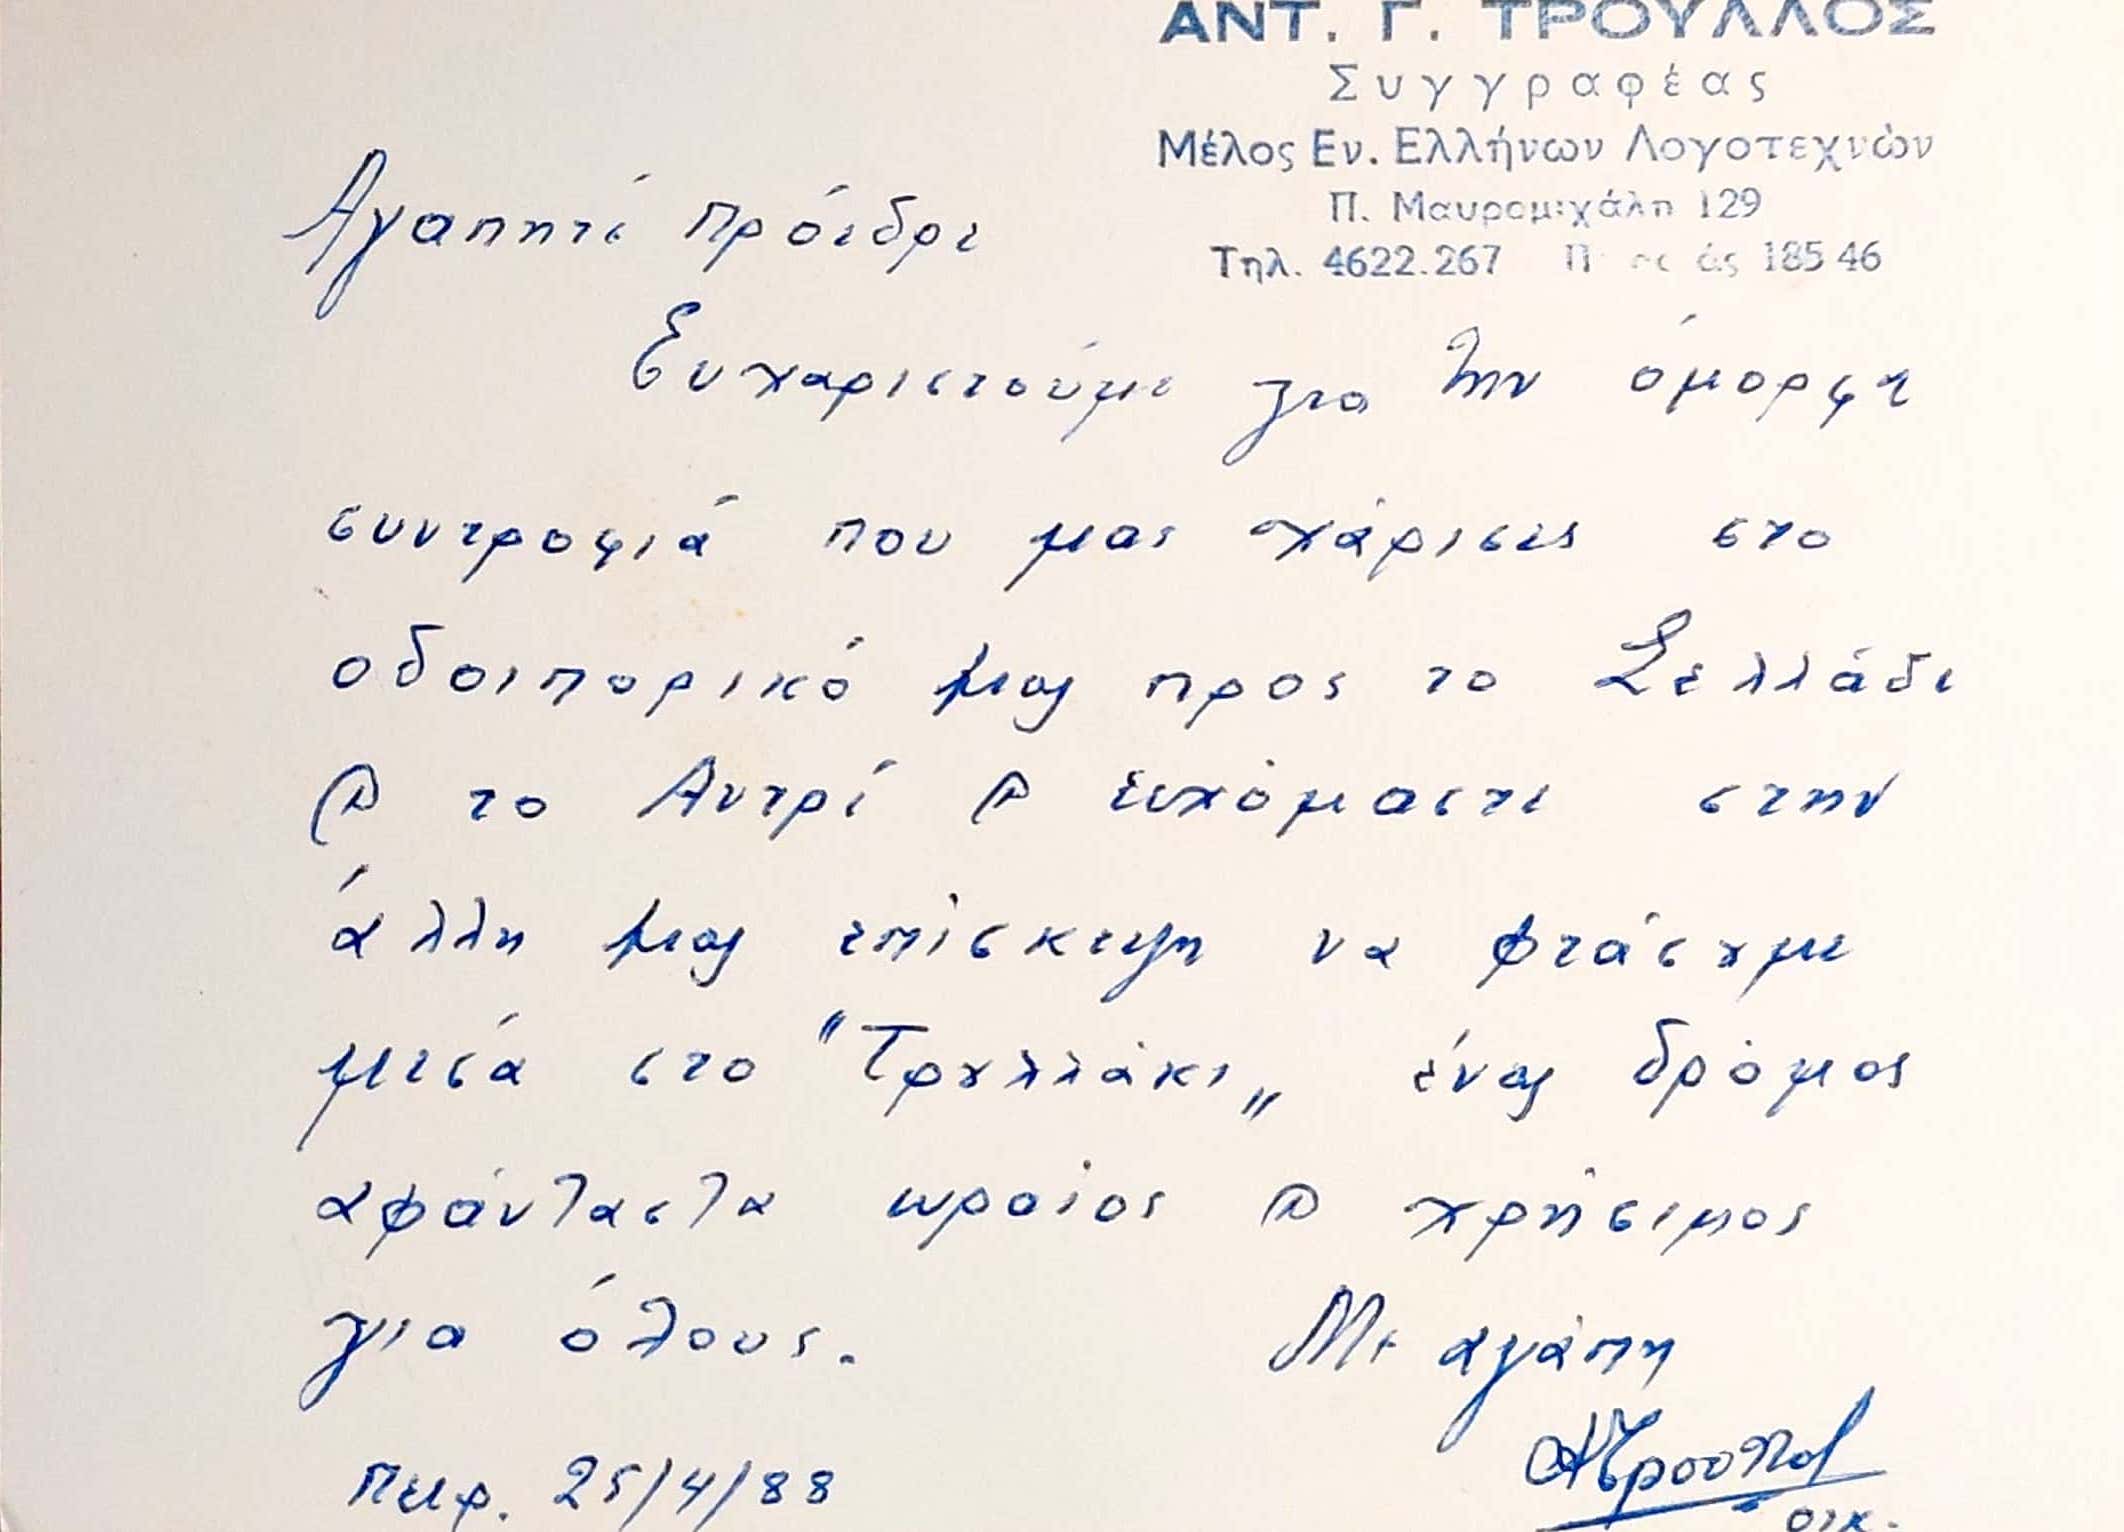 ΑΝΤ. Γ. ΤΡΟΥΛΛΟΣ
Συγγραφέας
Μέλος Εν. Ελλήνων Λογοτεχνών
Π. Μαυρομιχάλη 129
Τηλ. 4622.267 185 46
Αγαπητέ πρόεδρε
Ευχαριστούμε για την όμορφη
συντροφιά που μας χάρισες στο
οδοιπορικό μας προς το Σελλάδι
ϗ το Αντρί ϗ ευχόμαστε στην
άλλη μας επίσκεψη να φτάσουμε
μεσα στο "Τρουλλάκι„ ένας δρόμος
αφάνταστα ωραίος ϗ χρήσιμος
για όλους.
Με αγάπη
Πειρ. 25/4/88
οικ.